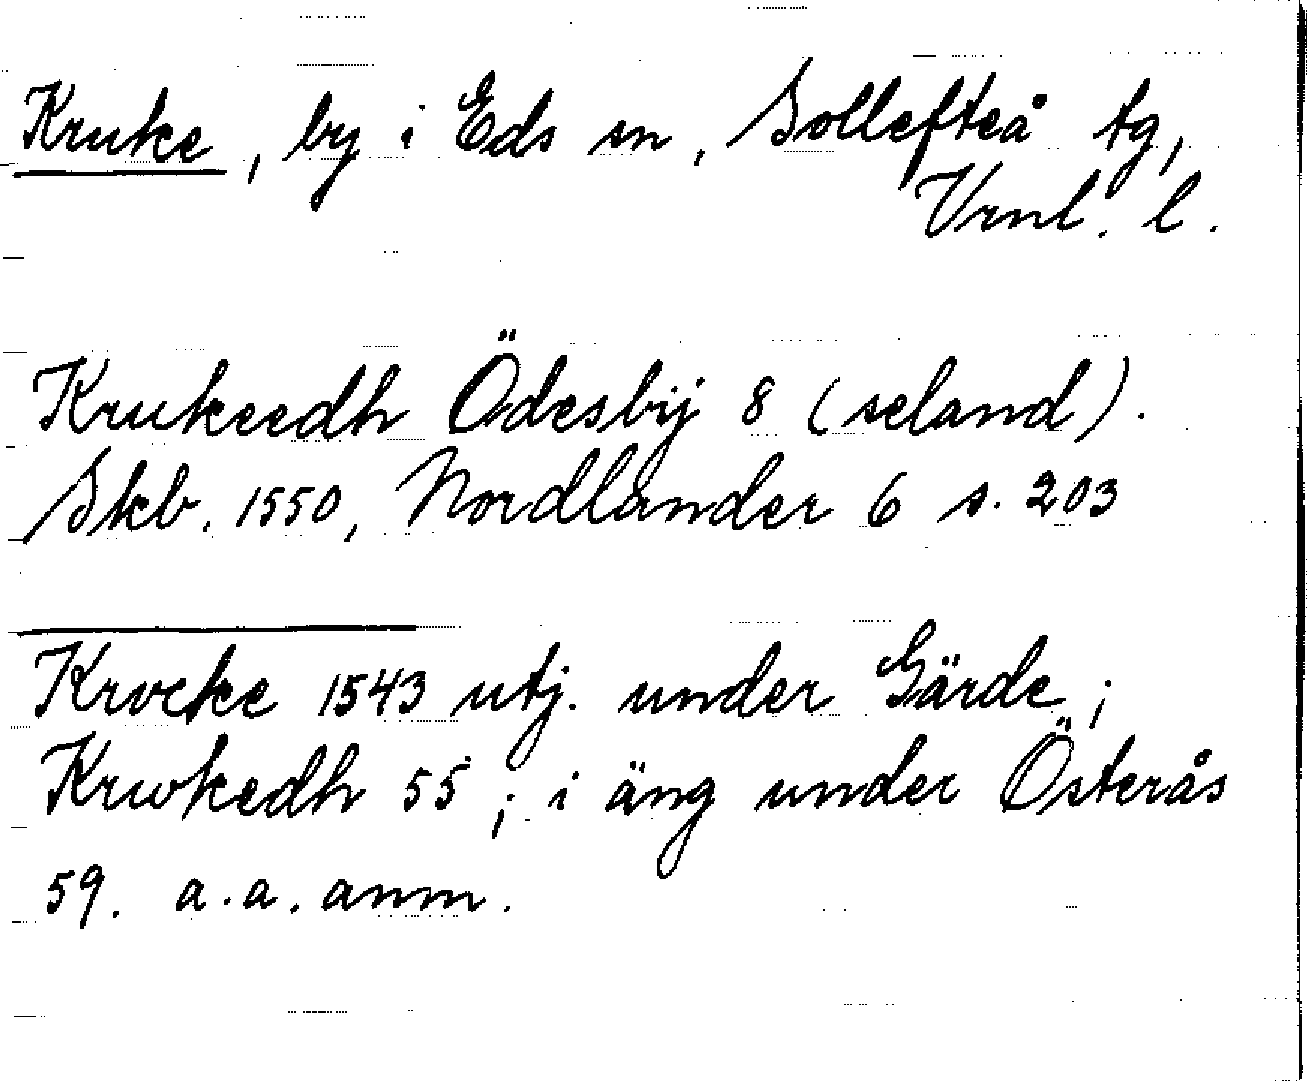 Kruke, by i Eds sn, Sollefteå tg,
Vrnl. l.
Krukeedh Ödesbÿ 8 (seland).
Skb. 1550, Nordlander 6 s. 203
Krvcke 1543 utj. under Gärde;
Krwkedh 55; i äng under Österås
59. a.a. anm.